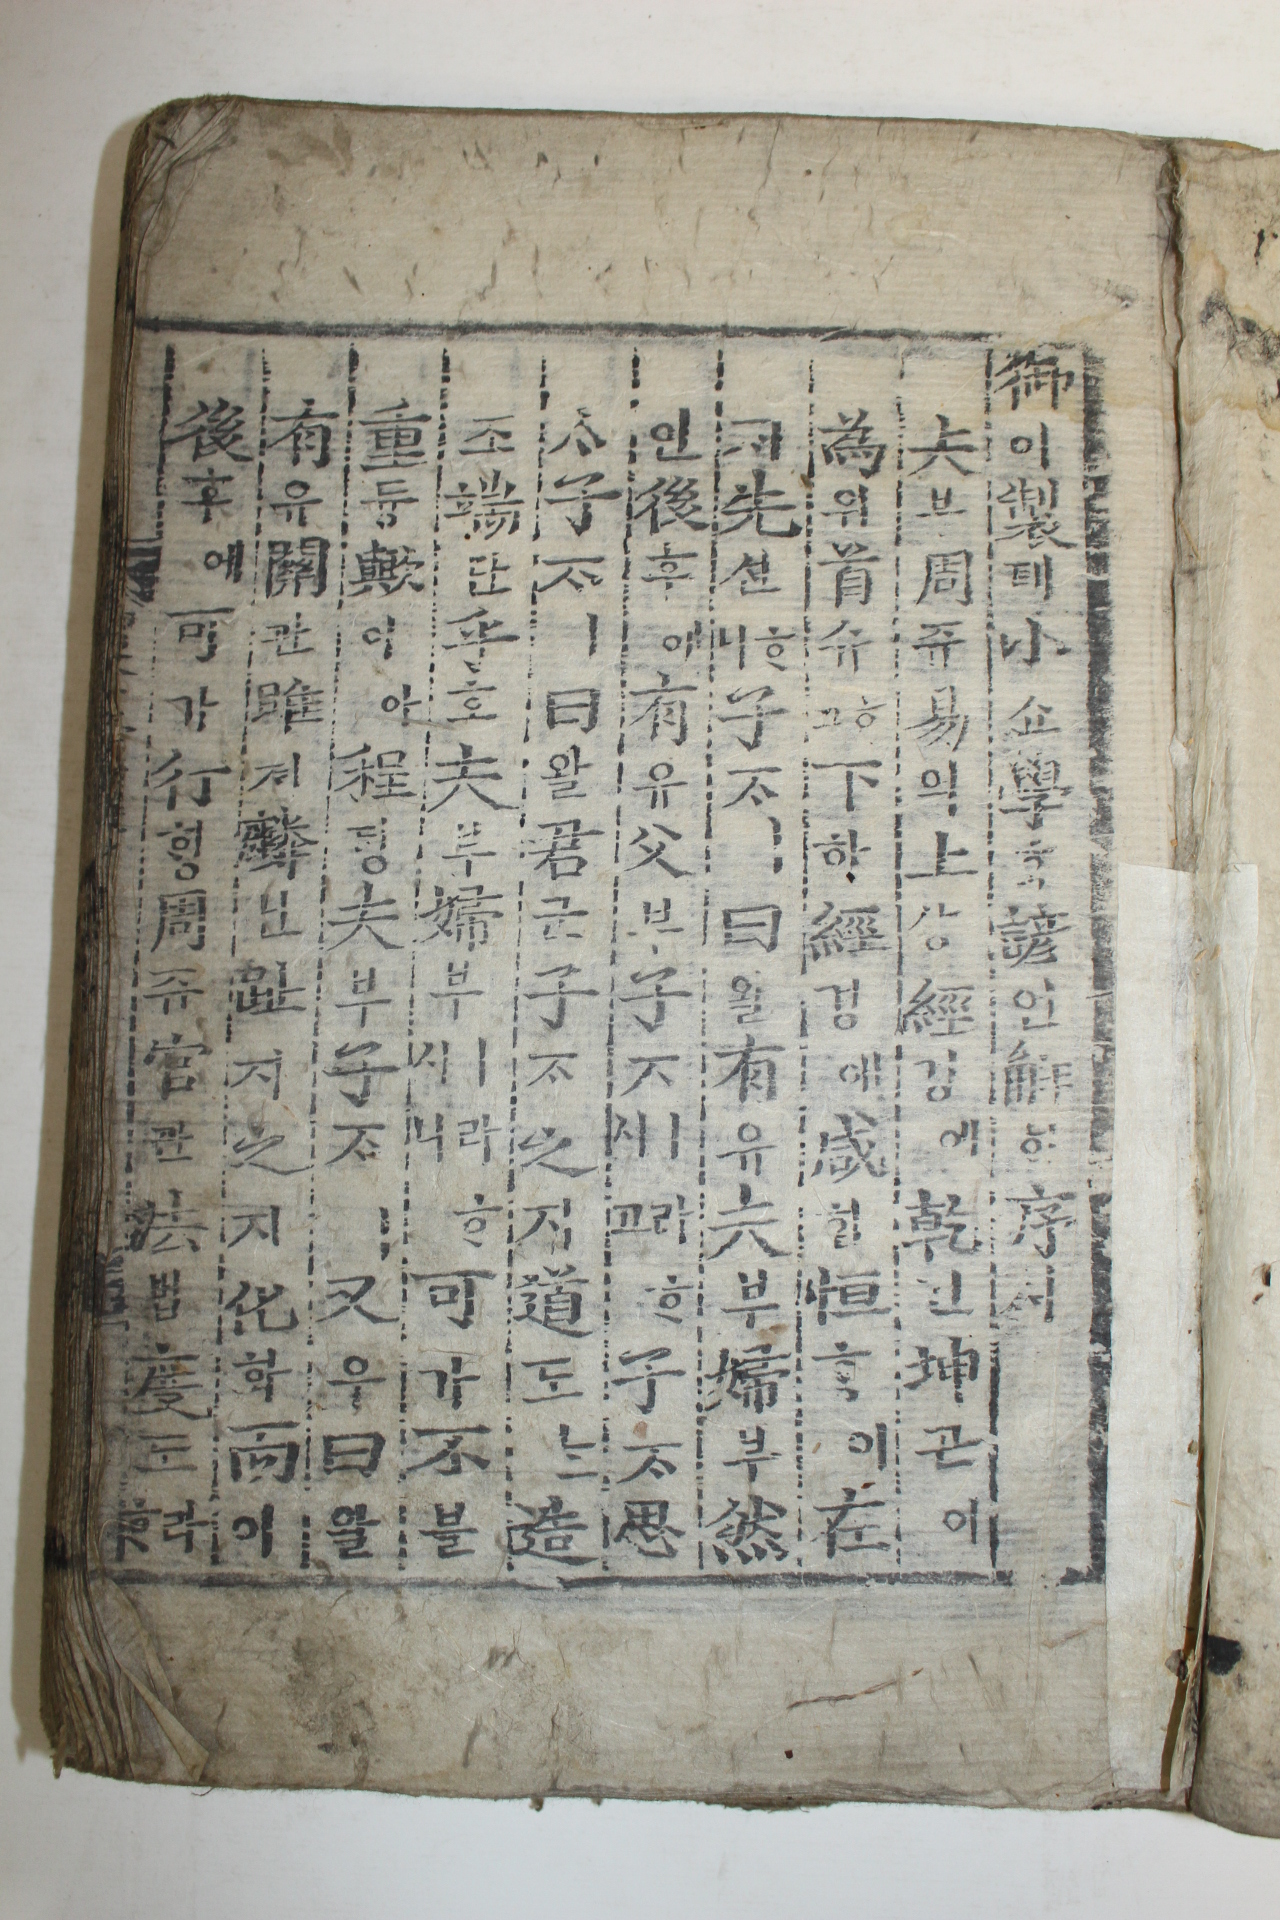 御이製졔小쇼學ᄒᆞᆨ諺언解ᄒᆡ序셔
夫부周쥬易역上샹經경에乾건坤곤이
為위首슈ᄒᆞ고下하經경에咸함恒ᄒᆞᆼ이在
ᄌᆡ先션ᄒᆞ니子ᄌᆞㅣ曰왈有유夫부婦부然
연後후에有유父부子ᄌᆞㅣ라ᄒᆞ시고子ᄌᆞ思
ᄉᆞ子ᄌᆞㅣ曰왈君군子ᄌᆞ之지道도ᄂᆞᆫ造
조端단乎호夫부婦부ㅣ라ᄒᆞ시니可가不블
重듕歟여아程뎡夫부子ᄌᆞㅣ又우曰왈
有유關관雎져麟닌趾지之지化화而이
後후에可가行ᄒᆡᆼ周쥬官관法법度도라ᄒᆞ